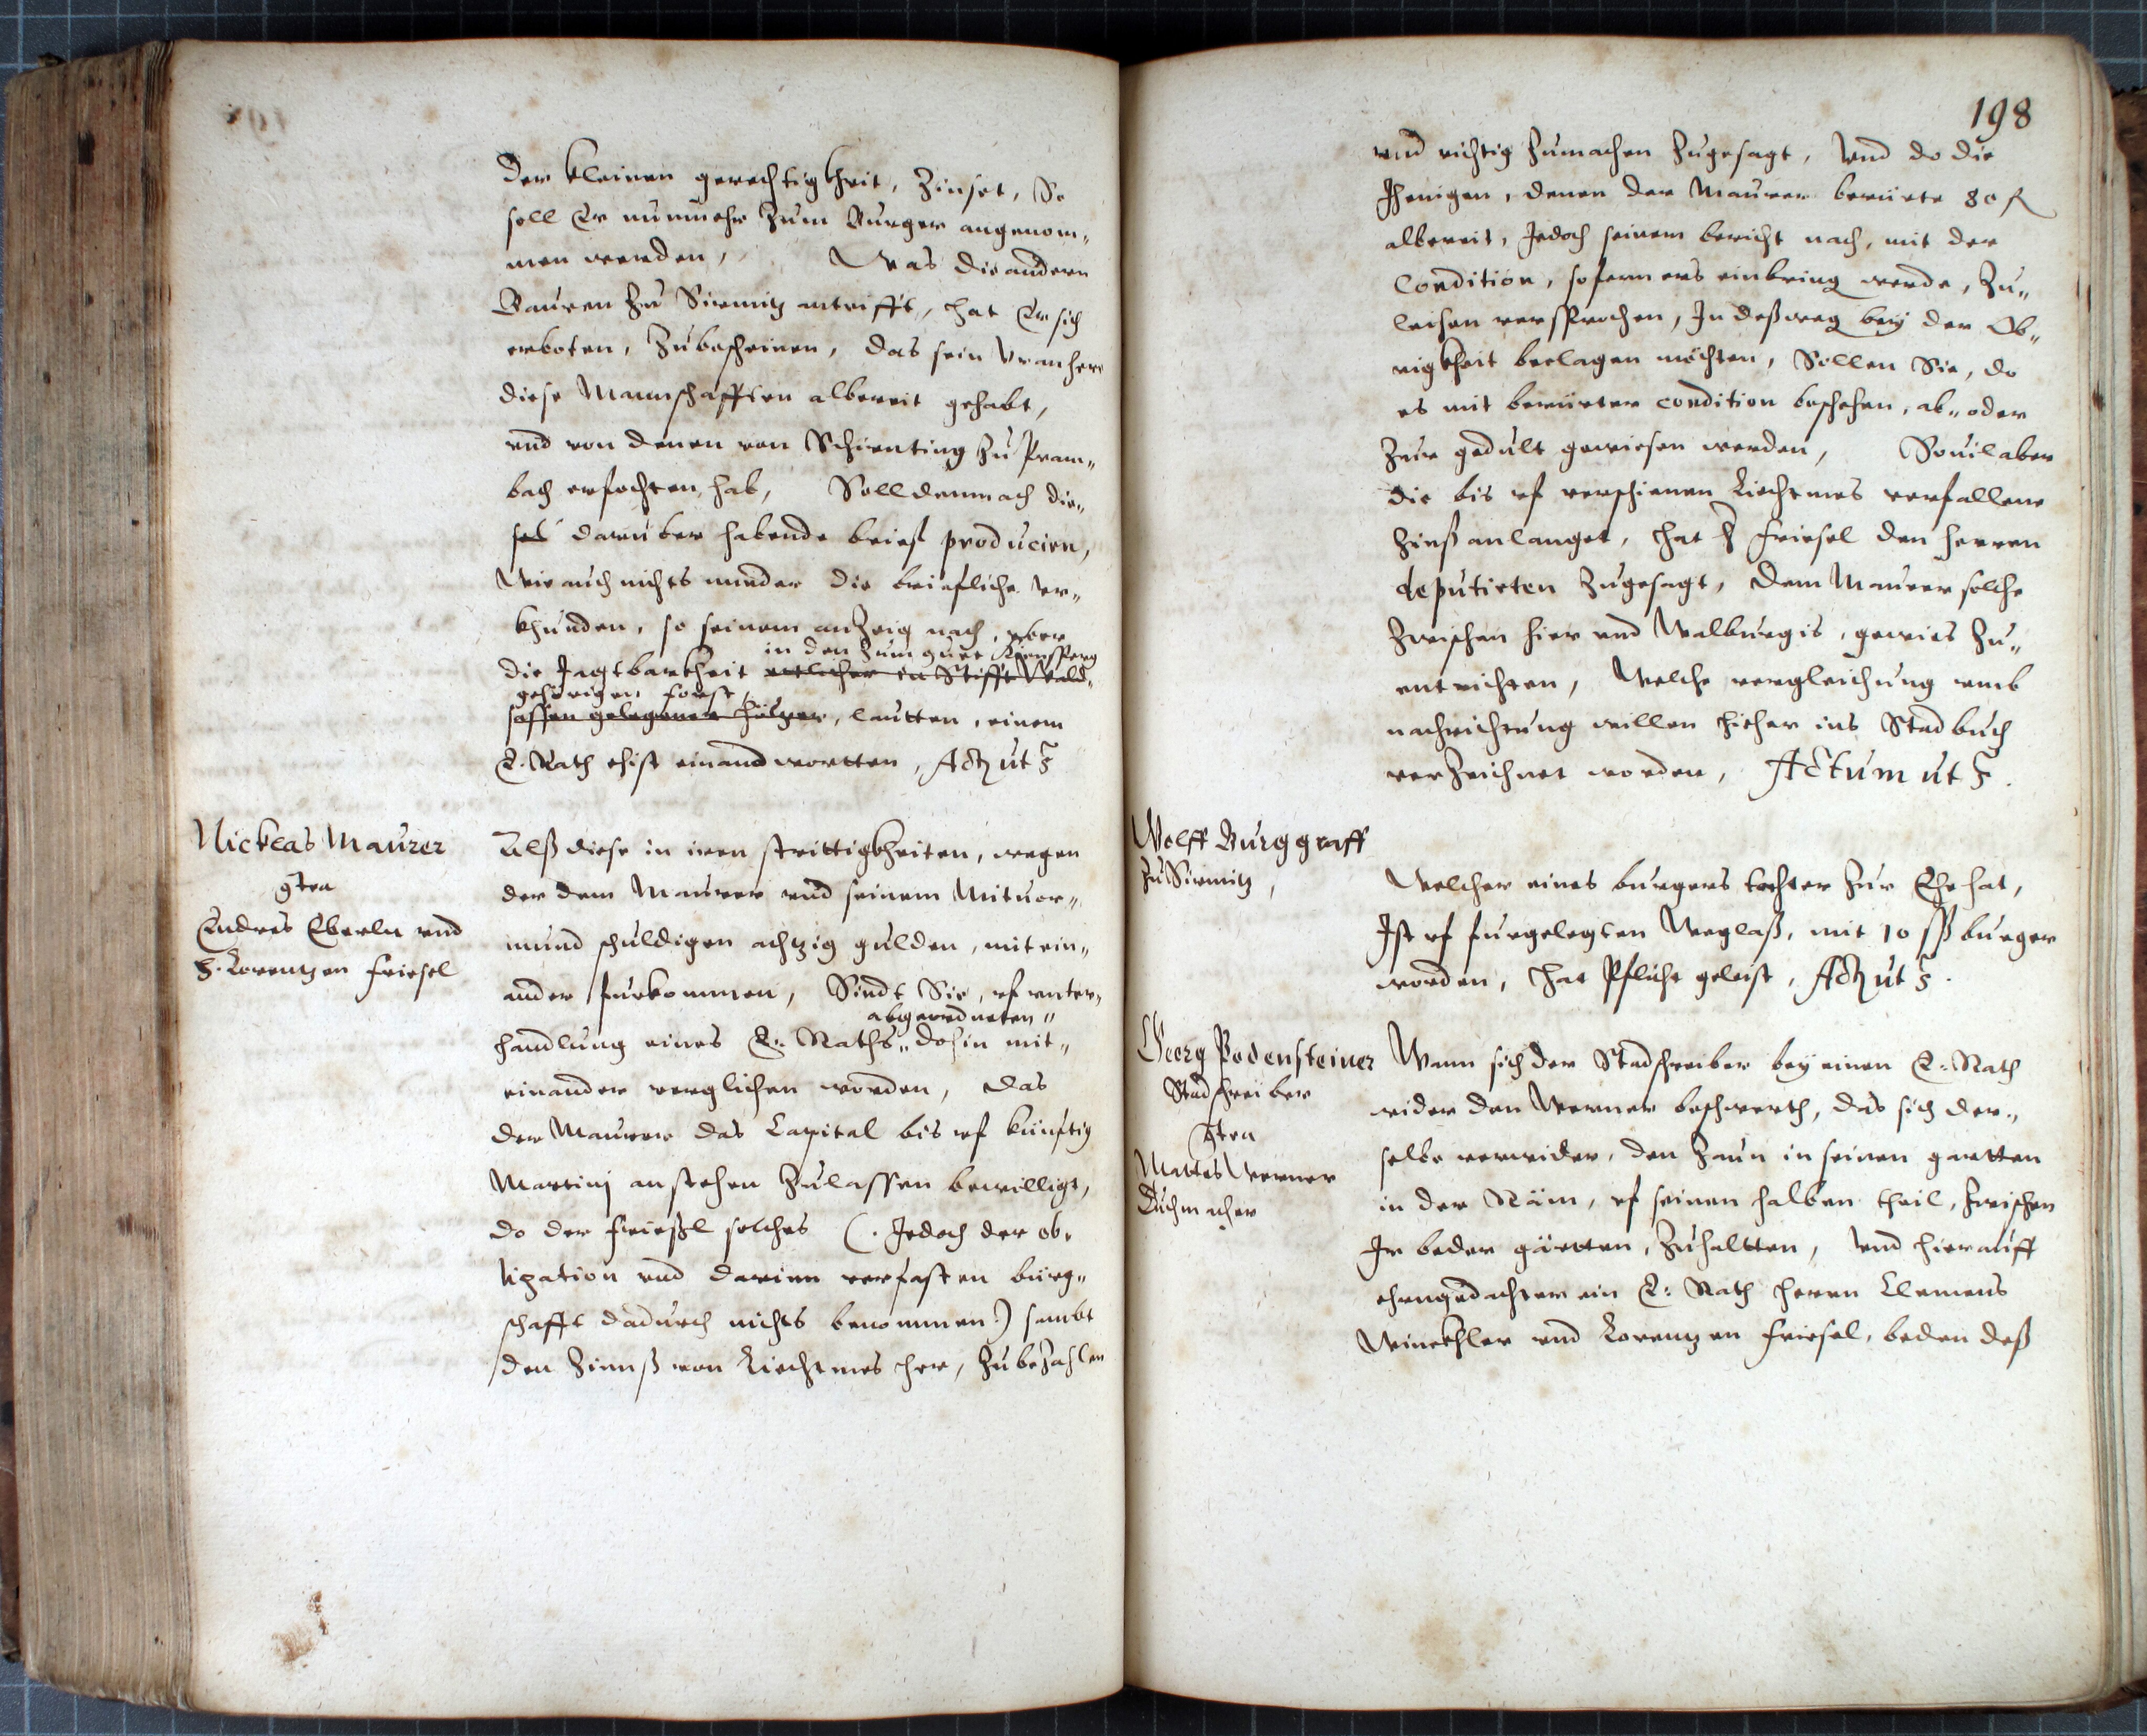 der kleinen gerechtigkheit, Zinset, So
soll Er nunmehr Zum Burger angenom„
men werden, Was die andern
Bauren Zu Sirmitz antrifft, hat Er sich
erboten, Zubescheinen, das sein Vranherr
diese Mannschafften albereit gehabt,
vnd von denen von Schirnting Zu Pram„
bach erfochten hab, Soll demnach die„
ses darüber habende brief producirn,
Wie auch nichts minder die briefliche Vr„
khunden, so seinem anZeig nach, vber
in den Zum guet Kinsperg
die Jagtbarkheit etlicher in Stifft Wald„
gehörigen Forst,
sassen gelegener höltzer, lautten, einem
E. Rath ehist einandwortten, Actum ut s.
Nicklas Maurer
contra
Endres Eberln vnd
H. Lorentzen Friesel
Alß diese in iren strittigkheiten, wegen
der dem Maurer vnd seinem Mituor„
mund schuldigen achtzig gulden, mit ein„
ander furkommen, Sindt Sie, vf vnter„
abgeordneten„
handlung eines E: Raths„ dohin mit„
einander verglichen worden, das
der Maurer das Capital bis vf künftig
Martinj anstehen Zulassen bewilligt,
do der Frießl solches (. Jedoch der ob„
ligation vnd darinn verfasten bürg„
schafft dadurch nichts benommen.) sambt
den Zinnß von Liechtmes her, Zubezahlen
198
vnd richtig Zumachen Zugesagt, Vnd do die
Jhenigen, denen der Maurer berürte 80 fl
albereit, Jedoch seinem bericht nach, mit der
Condition, sofern ers einbring werde, Zu„
leihen versprochen, In deßweg bey der Ob„
rigkheit beclagen möchten, Sollen Sie, do
es mit berürter condition beschehen, ab„ oder
Zur gedult gewiesen werden, Souil aber
die bis vf verschienen Liechtmes verfallene
Zinß anlanget, hat H Friesel den herren
deputirten Zugesagt, dem Maurer solche
Zwischen hier vnd Walburgis, gewies Zu„
entrichten, Welche vergleichung vmb
nachrichtung willen hieher ins Stadbuch
verZeichnet worden, Actum ut s.
Wolff Burggraff
Zu Sirmitz,
Welcher eines burgers tochter Zur Ehe hat,
Ist vf furgelegten Weglaß, mit 10 ßß burger
worden, hat Pflicht geleist, Actum ut s.
Georg Podensteiner
Stadschreiber
contra
Mattes Werner
Tuchmacher
Wann sich der Stadschreiber bey einen E: Rath
wider den Werner beschwerth, das sich der„
selbe verwider, den Zaun in seinen gartten
in der Räm, vf seinen halben theil, Zwischen
Ir beder gärtten, Zuhaltten, Vnd hierauff
ehrngedachter ein E: Rath herrn Clemens
Winckhler vnd Lorentzen Friesel, beden deß